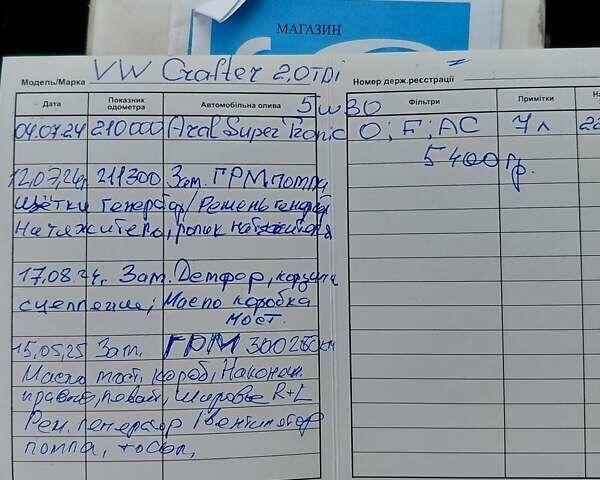 МАГАЗИН
Модель/Марка VW Crafter 2,0TDi
Номер держ.реєстрації
Дата Показник одометра Автомобільна олива 5w30 Фільтри Примітки На
04.07.24 210000 Aral Super Tronic O; F; AC 7л 22
5400 гр.
12.07.24г 211300 Зам. ГРМ помпа
щётки генератор/Ремень генер
Натяжителя, ролик натяжителя
17.08.24г. Зам. Демфер, корзина
сцепление; Масло коробка
мост.
15.05.25 Зам. ГРМ 300200км
Масло мост, короб, Наконеч.
правый, левый, шаровые R+L
Рем. генератор вентилятор
помпа, тосол,